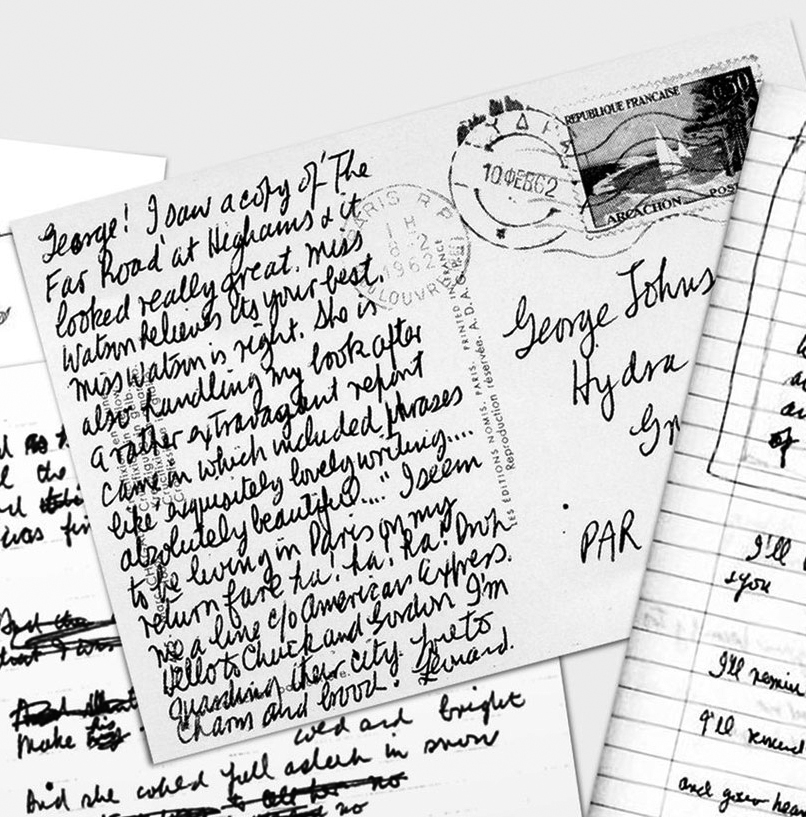 George! I saw a copy of 'The
Far Road' at Highams & it
looked really great. Miss
Watson believes its your best.
Miss Watson is right. She is
also handling my book after
a rather extravagant report
came in which included phrases
like "exquisitely lovely writing....
absolutely beautiful...." I seem
to be living in Paris on my
return fare ha! ha! ha! Drop
me a line c/o American Express.
Hello to Chuck and Gordon I'm
guarding their city. Love to
Charm and brood. Leonard.
PARIS R.P.
1 H
8-2
1962
LOUVRE
ΥΔΡΑ
10 ΦΕΒ 62
REPUBLIQUE FRANCAISE
0.30
ARCACHON
POST
LES EDITIONS NOMIS, PARIS. PRINTED IN FRANCE
Reproduction réservée. A.D.A.G.P.
George Johns
Hydra
Gr
PAR
the
was
that I was
Make his
and bright
And she could fall asleep in snow
no
no
of
I'll
you
I'll remin
I'll remind
and your hear